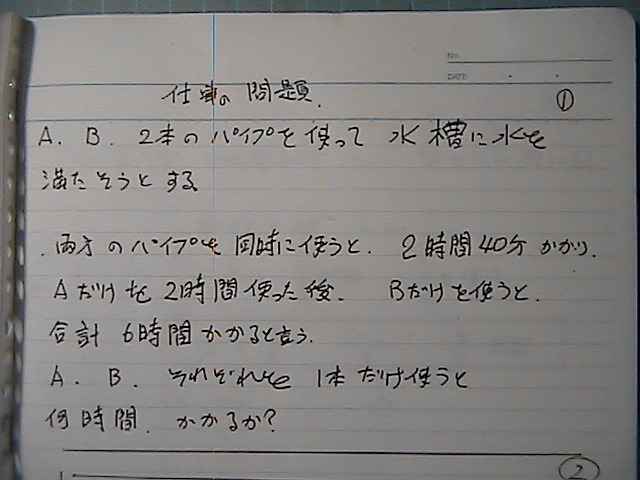 No.
DATE
仕事の問題. ①
A. B. 2本のパイプを使って 水槽に水を
満たそうとする
. 両方のパイプを同時に使うと. 2時間40分かかり.
Aだけを2時間使った後. Bだけを使うと.
合計 6時間かかると言う.
A. B. それぞれを 1本だけ使うと
何時間. かかるか?
②